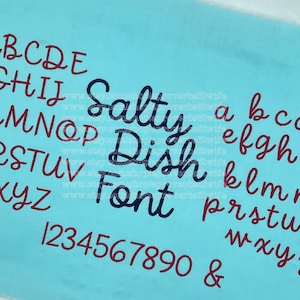 ABCDE
GHIJ
MNOP
RSTUV
XYZ
Salty
Dish
Font
a b c
efgh
klm
prstu
wxy
1234567890 &